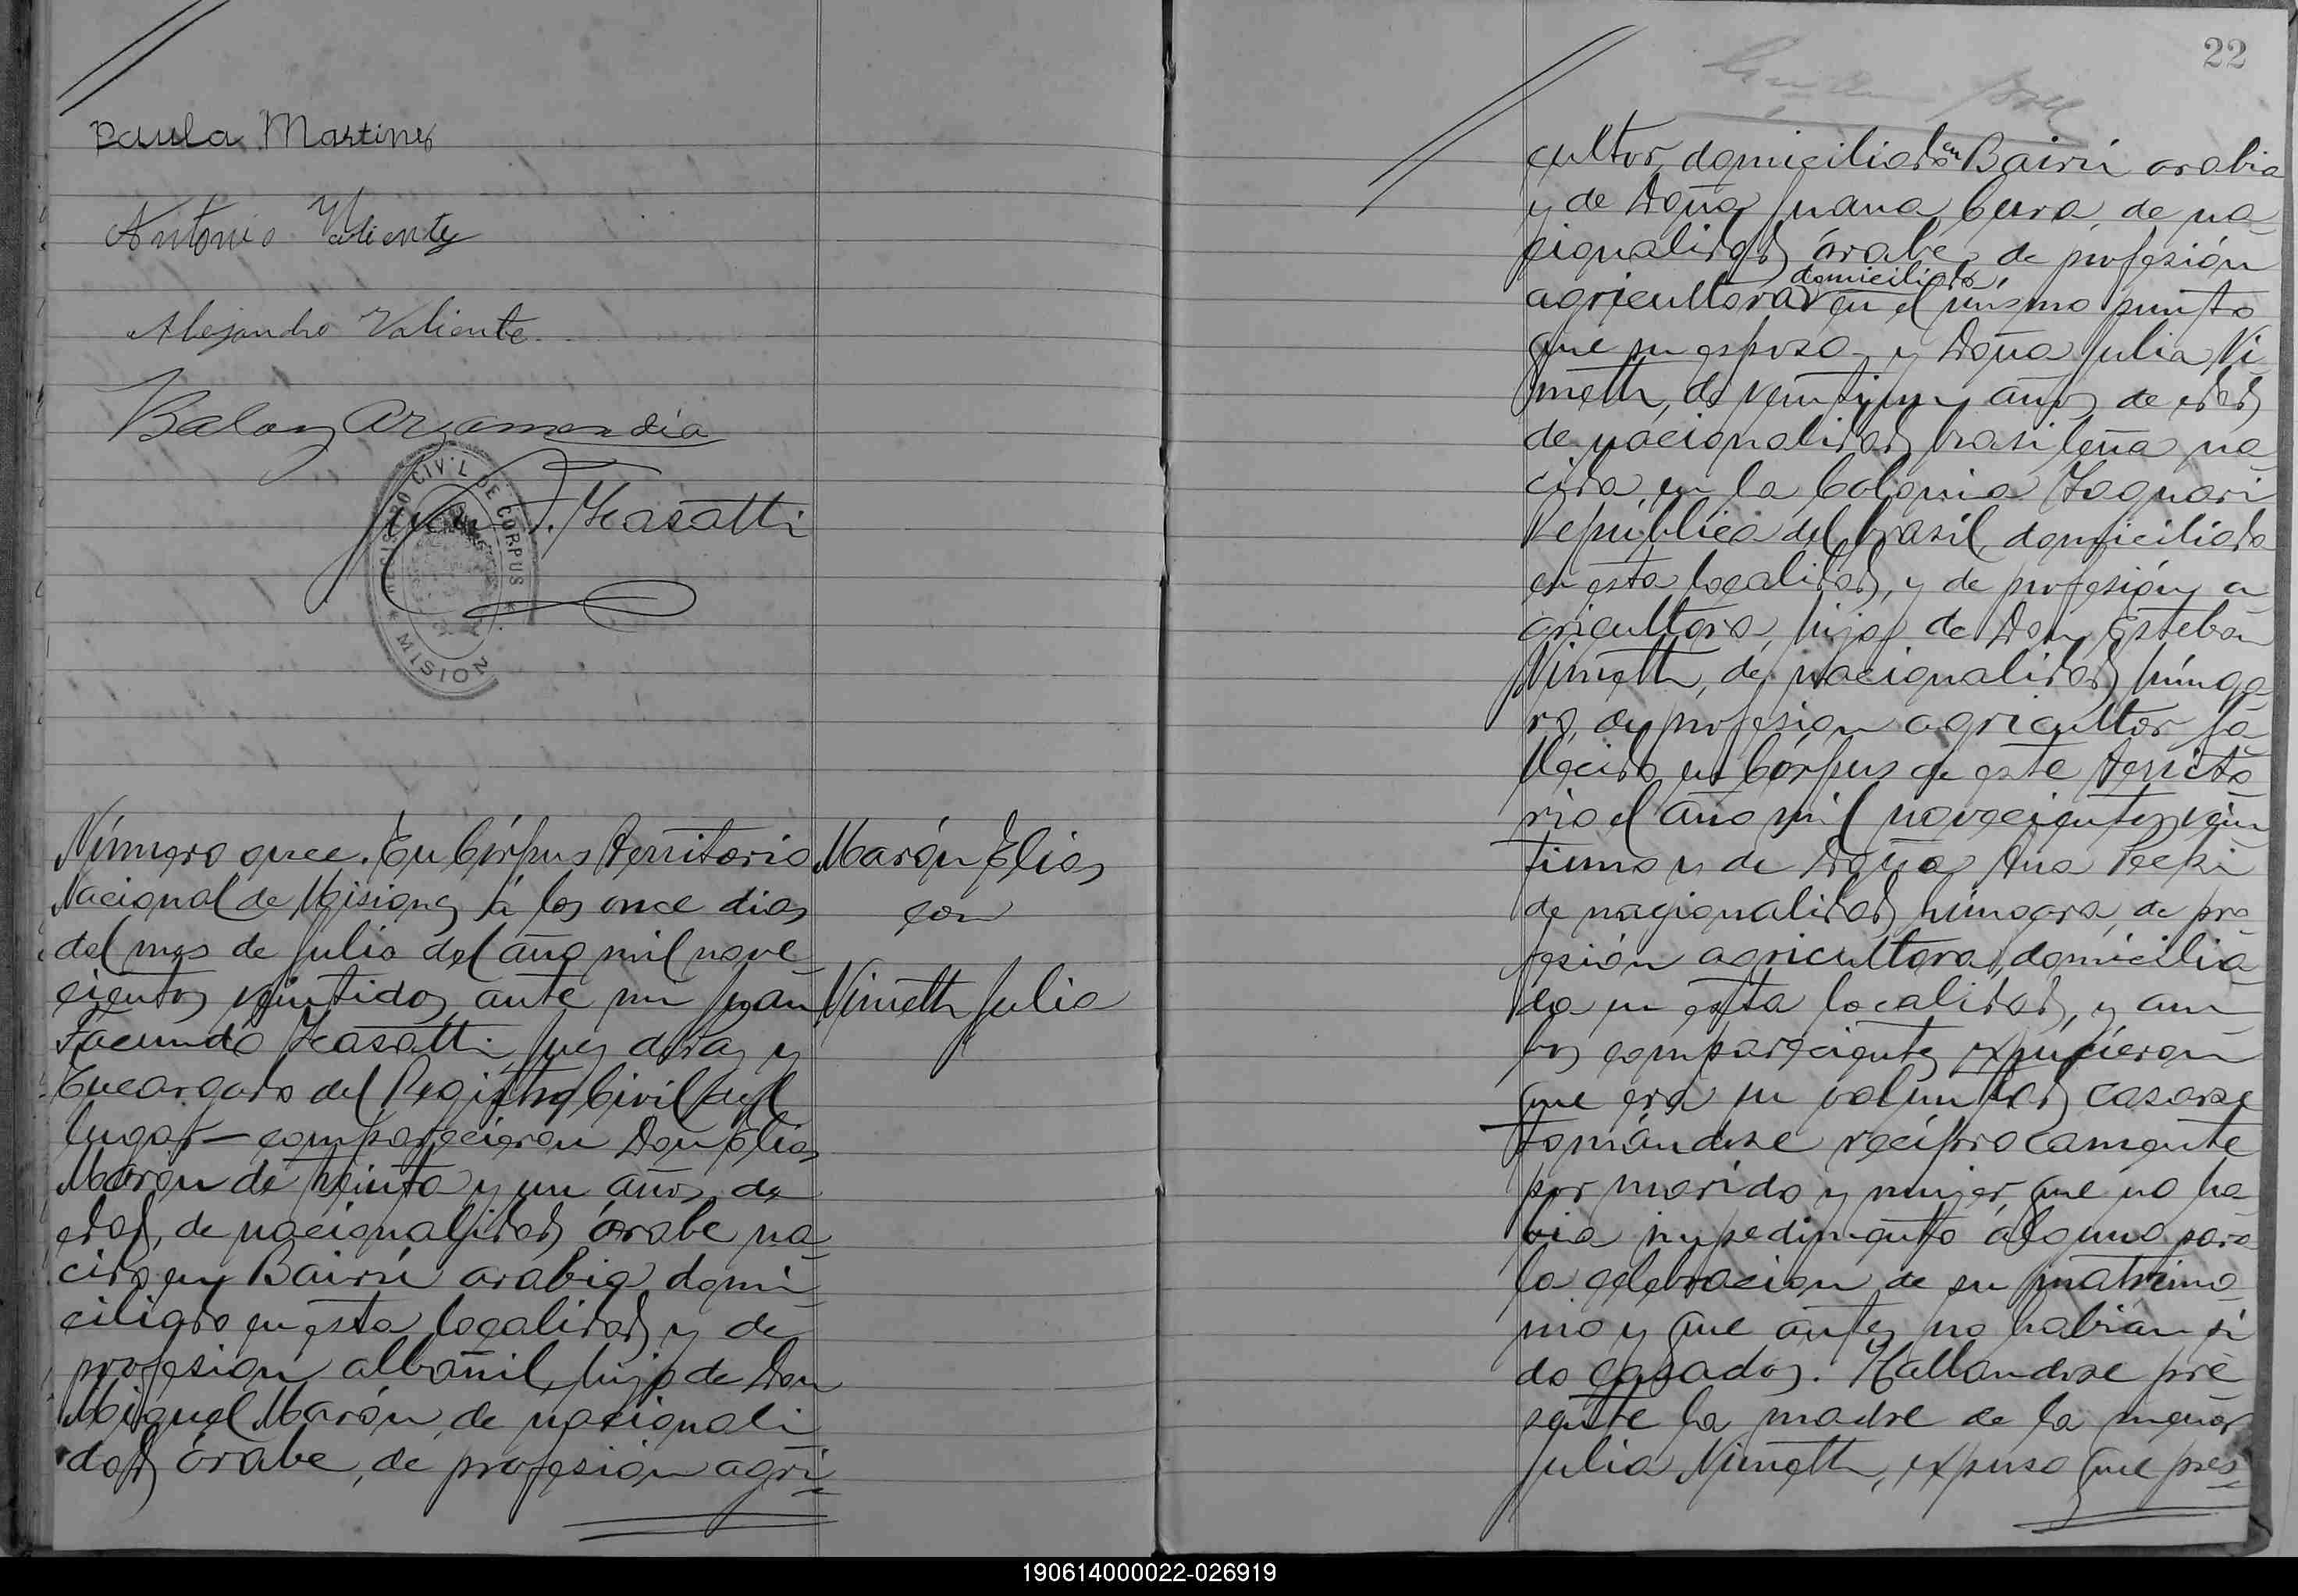 Paula Martinez
Antonio Valiente
Alejandro Valiente
Arzamendia
REGISTRO CIVIL DE CORPUS
* MISION
Juan F. Kasatti
Número once. En Córpus Territorio
Nacional de Misiones á los once dias
del mes de Julio del año mil nove
cientos veintidos, ante mi Juan
Facundo Kasatti, Juez de Paz y
Encargado del Registro Civil del
lugar — comparecieron Don Elias
Marón de treinta y un años de
edad, de nacionalidad árabe na
cido en Bairú arabia domi
ciliado en esta localidad y de
profesión albañil, hijo de Don
Miguel Marón, de nacionali
dad árabe, de profesión agri
Marón Elias
con
Nimeth Julia
22
cultor, domiciliado en Bairú arabia
y de Doña Juana, de na
cionalidad árabe, de profesión
agricultora domiciliada en el mismo punto
que su esposo y Doña Julia Ni
meth, de veintiun años de edad
de nacionalidad brasileña na
cida en la Colonia Jaguari
República del brasil, domiciliada
en esta localidad, y de profesión a
gricultora, hija de Don Esteban
Nimeth, de nacionalidad húnga
ro, de profesion agricultor fa
llecido en Córpus de este territo
rio el año mil novecientos vein
tiuno y de Doña Ana
de nacionalidad húngara, de pro
fesión agricultora, domicilia
da en esta localidad, y am
bos comparecientes expusieron
que era su voluntad casarse
tomándose recíprocamente
por marido y mujer, que no ha
bia impedimento alguno para
la celebracion de su matrimo
nio y que antes no habian si
do casados. Hallandose pre
sente la madre de la menor
Julia Nimeth, expuso que pres
190614000022-026919